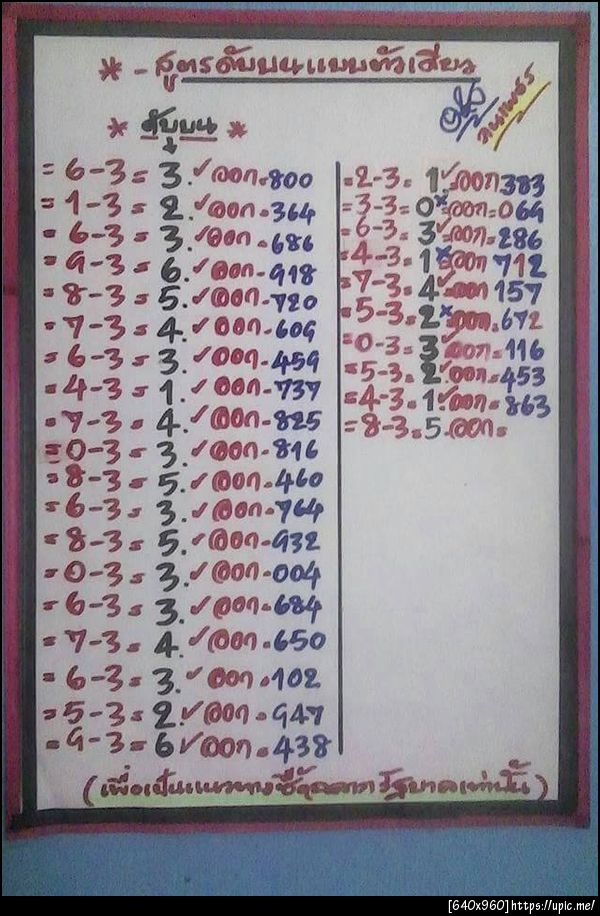 * - สูตรดับบนแบบตัวเดียว
* ดับบน *
= 6-3 = 3. ✓ออก=800
= 1-3 = 2. ✓ออก=364
= 6-3 = 3. ✓ออก=686
= 9-3 = 6. ✓ออก=918
= 8-3 = 5. ✓ออก=720
= 7-3 = 4. ✓ออก=609
= 6-3 = 3. ✓ออก=459
= 4-3 = 1. ✓ออก=737
= 7-3 = 4. ✓ออก=825
= 0-3 = 3. ✓ออก=816
= 8-3 = 5. ✓ออก=460
= 6-3 = 3. ✓ออก=764
= 8-3 = 5. ✓ออก=932
= 0-3 = 3. ✓ออก=004
= 6-3 = 3. ✓ออก=684
= 7-3 = 4. ✓ออก=650
= 6-3 = 3. ✓ออก=102
= 5-3 = 2 ✓ออก=947
= 9-3 = 6 ✓ออก=438
= 2-3 = 1 ✓ออก 383
= 3-3 = 0 ×ออก=069
= 6-3 = 3 ✓ออก=286
= 4-3 = 1 ×ออก 712
= 7-3 = 4 ✓ออก 157
= 5-3 = 2 ×ออก.672
= 0-3 = 3 ✓ออก=116
= 5-3 = 2 ✓ออก=453
= 4-3 = 1 ✓ออก=863
= 8-3 = 5 .ออก=
(เพื่อเป็นแนวทางซื้อฉลากรัฐบาลเท่านั้น)
[640x960]https://upic.me/